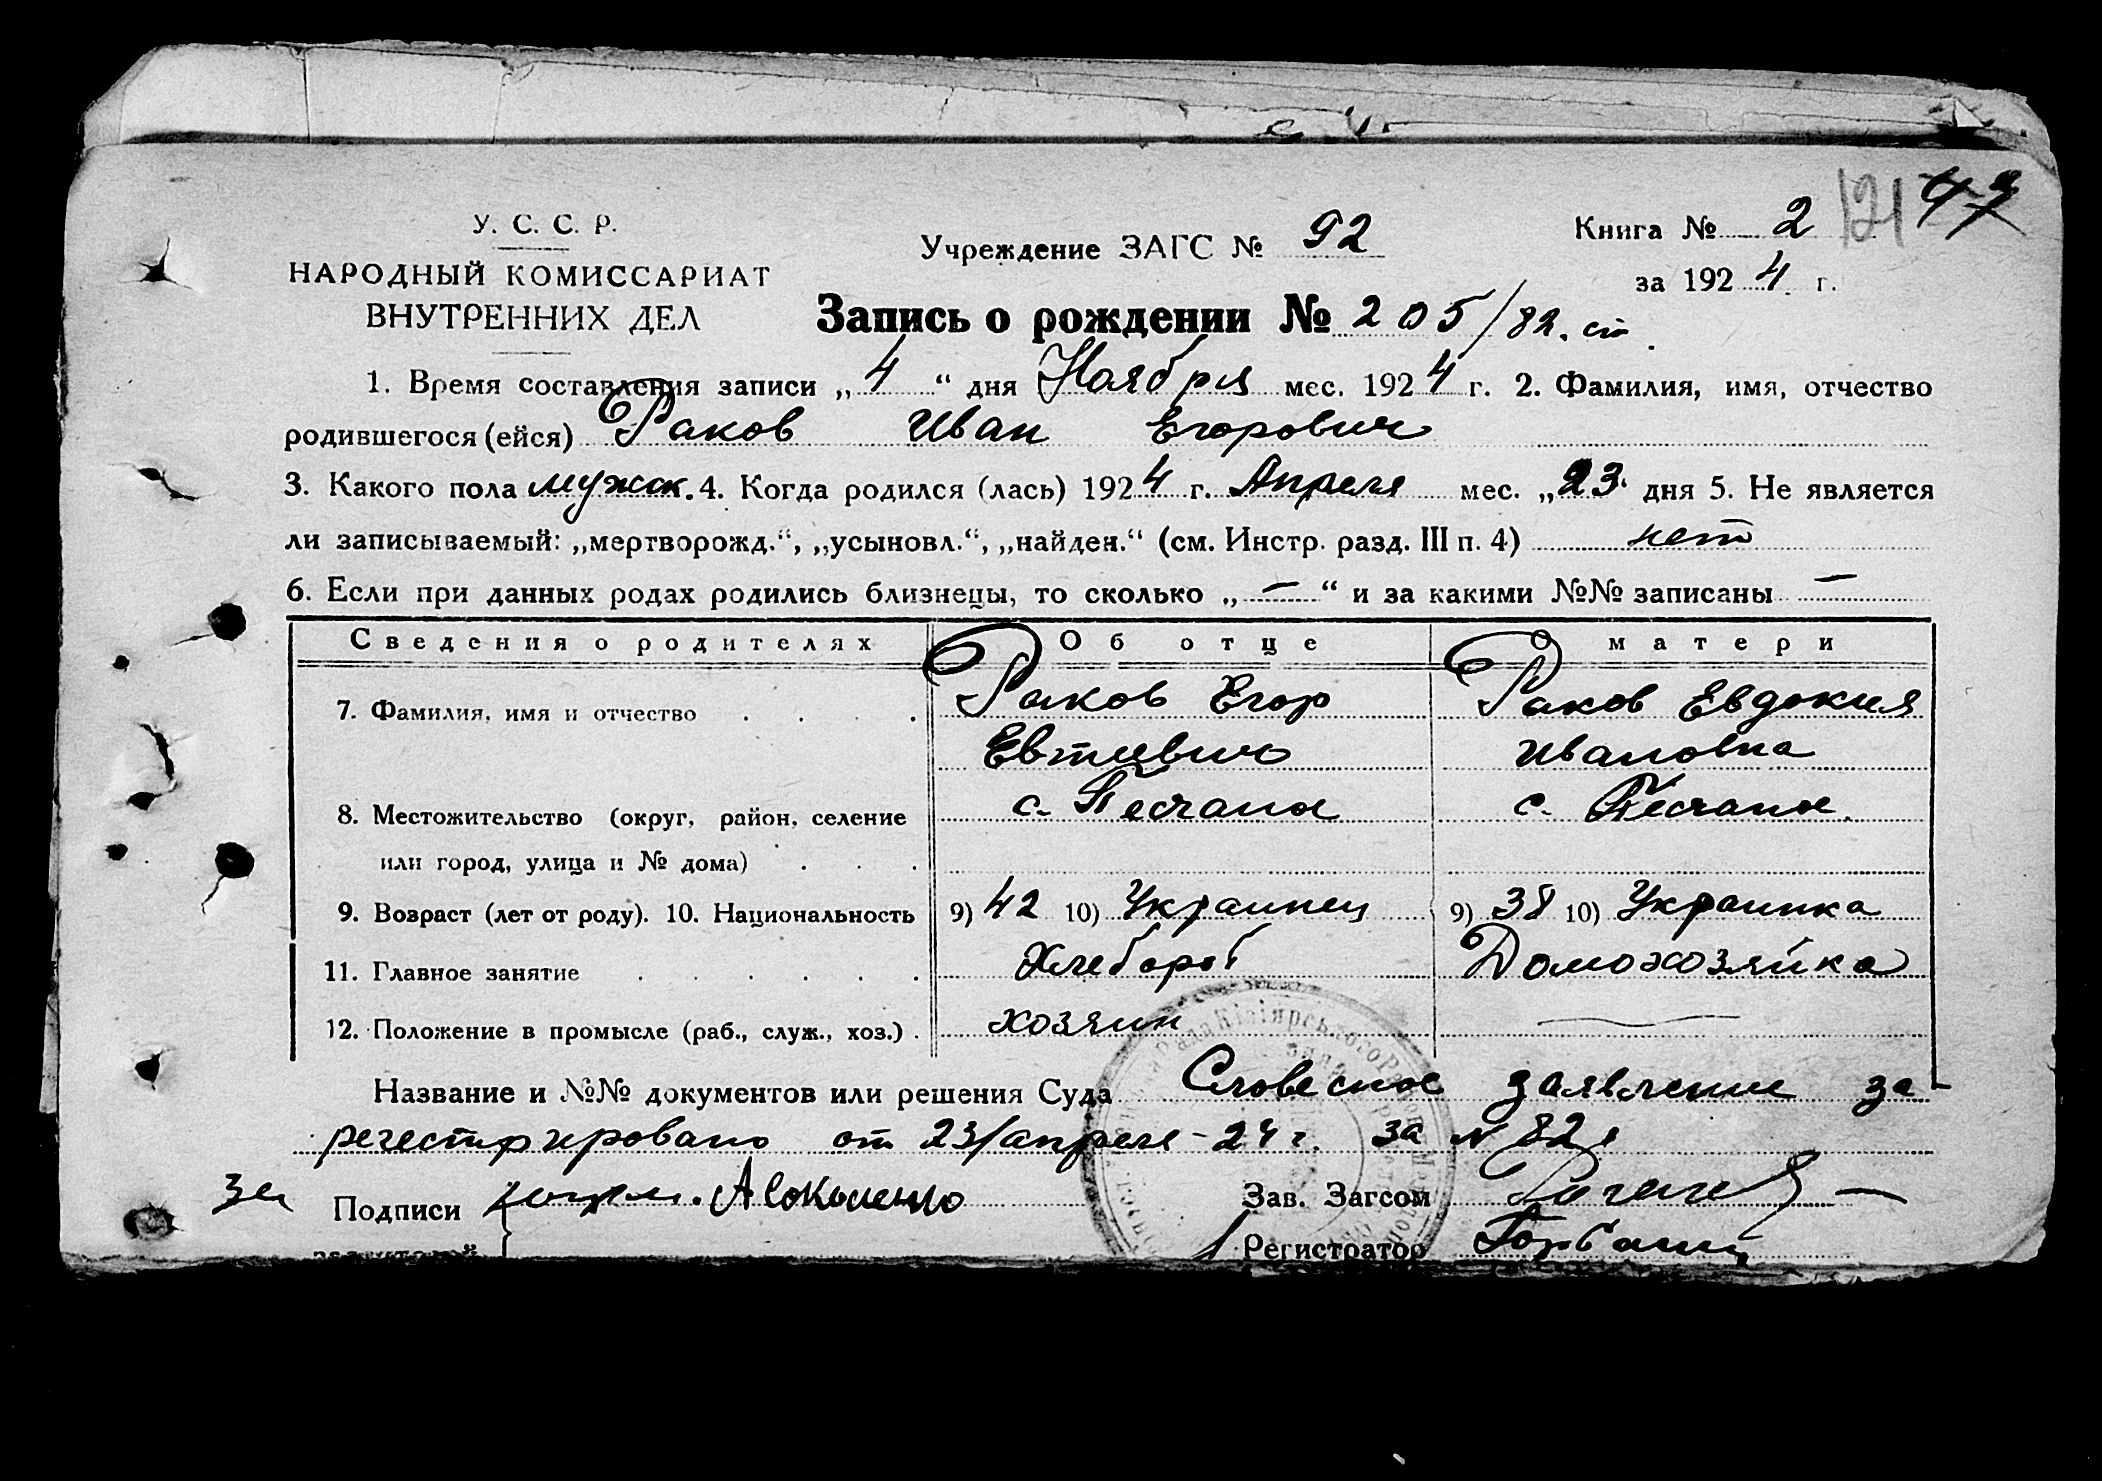 121 47
У. С. С. Р.
НАРОДНЫЙ КОМИССАРИАТ
ВНУТРЕННИХ ДЕЛ
Учреждение ЗАГС № 92
Книга № 2
за 1924 г.
Запись о рождении № 205/82. ст
1. Время составления записи „4“ дня Ноября мес. 1924 г. 2. Фамилия, имя, отчество
родившегося (ейся) Раков Иван Егорович
3. Какого пола мужск. 4. Когда родился (лась) 1924 г. Апреля мес. „23“ дня 5. Не является
ли записываемый: „мертворожд.“, „усыновл.“, „найден.“ (см. Инстр. разд. III п. 4) нет
6. Если при данных родах родились близнецы, то сколько „—“ и за какими №№ записаны —
Сведения о родителях Об отце О матери
7. Фамилия, имя и отчество . . . . Раков Егор Раков Евдокия
Евтиевич Ивановна
8. Местожительство (округ, район, селение с. Песчаная с. Песчаная.
или город, улица и № дома) . . .
9. Возраст (лет от роду). 10. Национальность 9) 42 10) Украинец 9) 38 10) Украинка
11. Главное занятие . . . . . . Хлебороб Домохозяйка
12. Положение в промысле (раб., служ., хоз.) . хозяин —
Название и №№ документов или решения Суда Словесное заявление за
регестрировано от 23/апреля - 24 г. за № 82
за Подписи А Соколенко Зав. Загсом
заявителей Регистратор Горбань